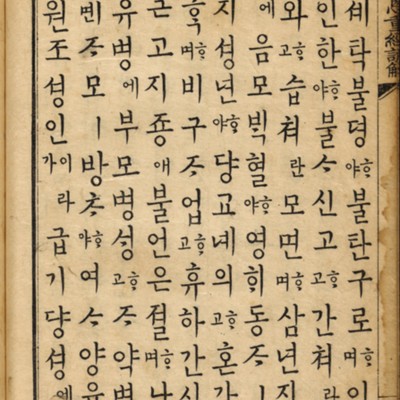 重經諺解
셰탁불뎡ᄒᆞ야불탄구로ᄒᆞ며인
인한ᄒᆞ야불ᄉᆞ신고ᄒᆞ고간쳐라
와ᄒᆞ고습쳐란모면ᄒᆞ며삼년지
에음모ᄇᆡᆨ혈ᄒᆞ야영ᄒᆡ동ᄌᆞㅣ
지셩년ᄒᆞ야댱교녜의ᄒᆞ고혼가
혹ᄒᆞ며비구ᄌᆞ업ᄒᆞ고휴하간신
근고지죵애불언은졀ᄒᆞ며
유병에부모병셩ᄒᆞ고ᄌᆞ약병
몐ᄌᆞ모ㅣ방ᄎᆞᄒᆞ야여ᄉᆞ양육
원조셩인이가라급기댱셩엔